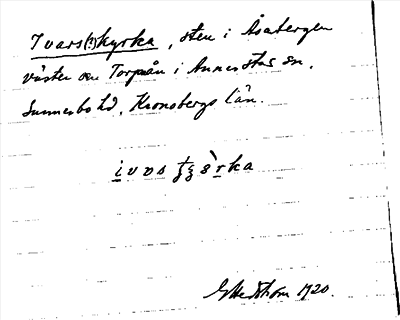 Ivars(?)kyrka, sten i Åsabergen
väster om Torpaån i Annerstas sn,
Sunnerbo hd, Kronobergs län.
G. Hedström 1920.